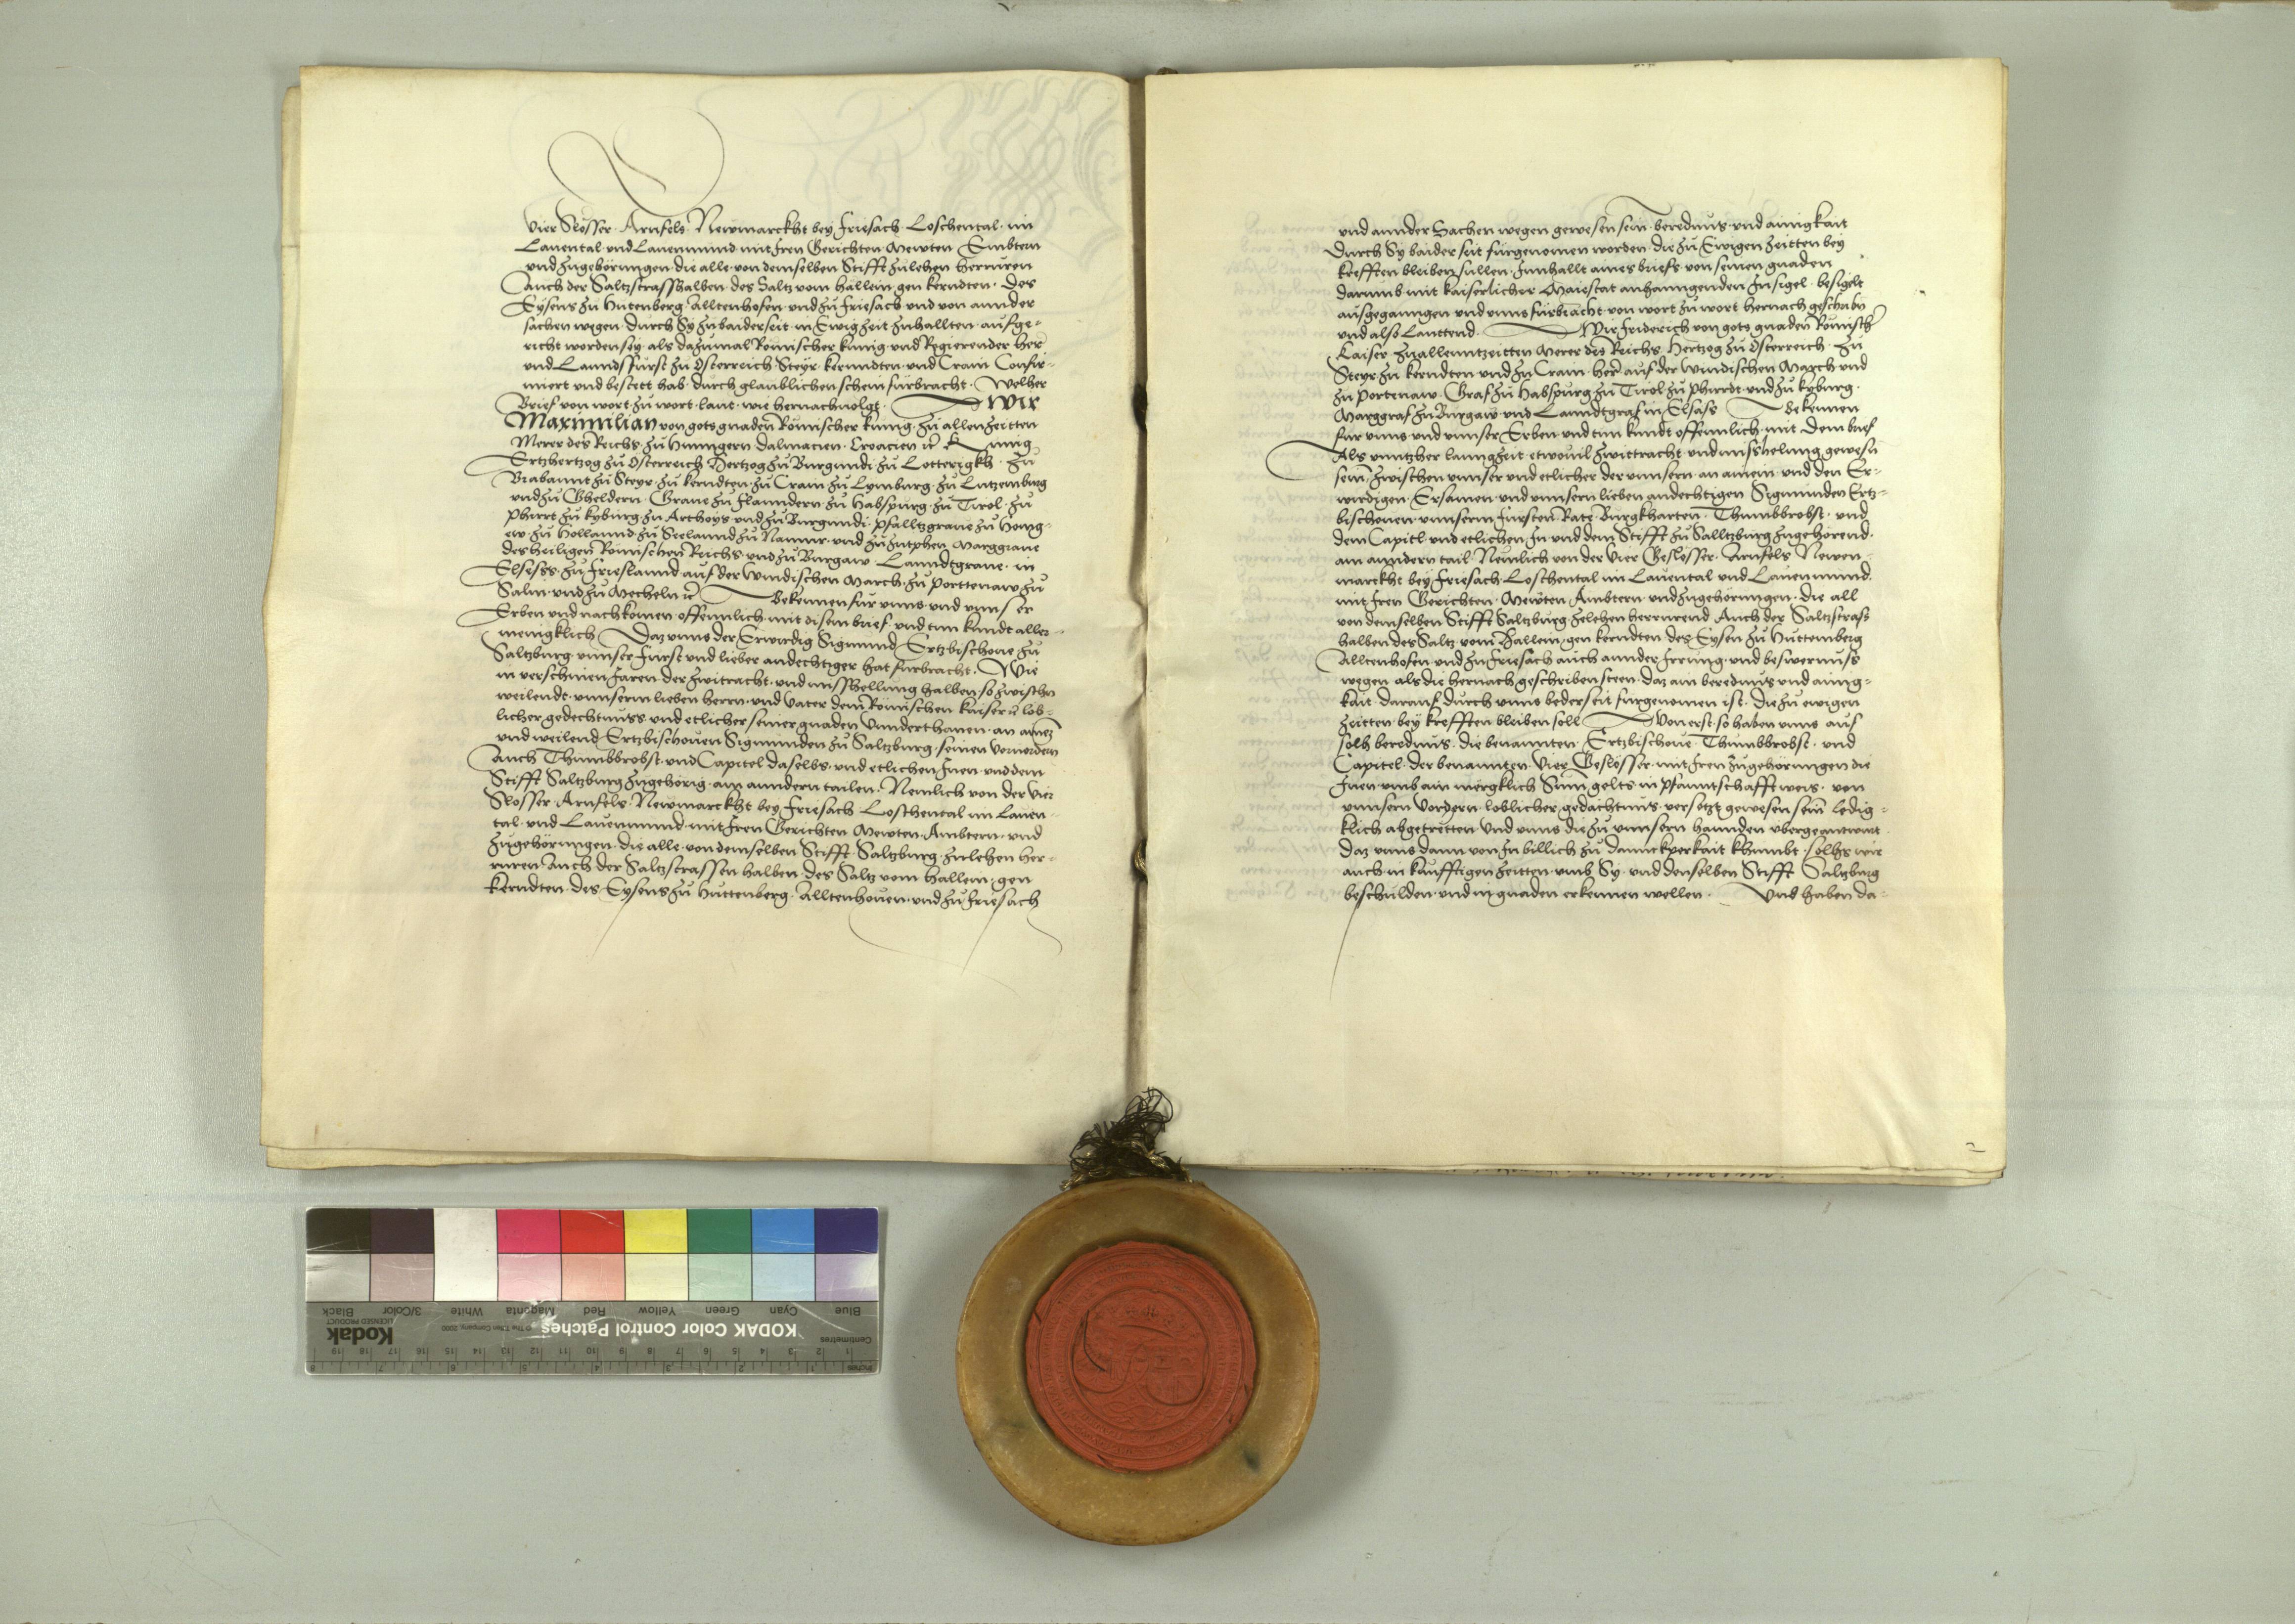 Vier Slösser · Arnfels · Newmarckht bey Friesach · Loschental · im
Lauental · und Lauenmund · mit Iren Gerichten · Mewten · Embtern
und Zugehörungen · die alle · von demselben Stifft zulehen herruren
Auch der Saltzstrasshalben · des Saltz vom hallein · gen kerndten · Des
Eysens zu Hutenberg · Alltenhofen · und zu Friesach · und von annder
sachen wegen · durch Sy zu baiderseit · in Ewig Zeit zuhallten · aufge-
richt worden sey · als dazumal Römischer kunig · und Regierender Herr
und Lanndsfürst zu Osterreich · Steyr · kernndten · und Crain · Confir-
miert und bestett hab · durch glaublichen schein fürbracht · Welher
Brief von wort zu wort · laut · wie hernachuolgt · Wir
Maximilian von gots gnaden Römischer kunig · zu allen Zeitten
Merer des Reichs · zu Hunngern · Dalmacien · Croacien rc kunig
Ertzhertzog zu Osterreich · Hertzog zu Burgundi · zu Lotterigkh · zu
Brabannt · zu Steyr · zu kerndten · zu Crain · zu Lymburg · zu Lutzemburg
und zu Gheldern · Graue zu Flanndern · zu Habspurg · zu Tirol · zu
Phirrt · zu kyburg · zu Arthoys · und zu Burgundi · Pfalltzgraue zu Henig-
ew · zu Hollannd · zu Seelannd · zu Namur · und zu Zutphen · Marggraue
des heiligen Römischen Reichs · und zu Burgaw · Lanndtgraue · in
Elsess · zu Frieslannd · auf der Windischen March · zu Porttenaw · zu
Salm · und zu Mecheln rc Bekennen für unns · und unns er
Erben und nachkomen · offennlich · mit disem brief · und tun kundt aller-
menigklich Daz unns der Erwirdig Sigmund Ertzbischoue zu
Saltzburg · unnser Fürst und lieber andechtiger hat furbracht · Wie
in verschinen Jaren · der zwitracht · und misshellung halben · so zwischn
weilendt · unnserm lieben herrn · und Vater dem Römischen kaiser rc lob-
licher gedechtnuss · und etlicher seiner gnaden Unnderthanen · an ainez
und weilend Ertzbischouen Sigmunden zu Saltzburg · seinen Vorvordern
Auch Thumbbrobst · und Capitel daselbs · und etlichen Inen · und dem
Stifft Saltzburg zugehörig · am anndern tailen · Nemlich von der Vier
Slösser · Arnfels · Newmarckht bey Friesach Loschental im Lauen-
tal · und Lauenmund · mit Iren Gerichten · Mewten · Ambtern · und
Zugehörungen · die alle · von demselben Stifft · Saltzburg · zulehen her-
ruren · Auch der Saltzstrassen halben · des Saltz vom hallein · gen
kerndten · des Eysens zu Huttenberg · Alltenhouen · und zu Friesach
und annder Sachen wegen gewesen sein · berednus · und ainigkait
Durch Sy baiderseit fürgenomen worden · die zu Ewigen Zeitten bey
krefften bleiben sullen · Innhallt aines briefs · von seinen gnaden
darumb · mit kaiserlicher Maiestat anhanngenden Insigel · besigelt
ausgegangen und unns fürbracht · von wort zu wort hernach geschribn
und also Lauttend Wir Friderich von gots gnaden Römischer
kaiser zu allenntzeitten Merer des Reichs · Hertzog zu Osterreich · zu
Steyr · zu kernndten · und zu Crain · herr auf der Windischen March · und
zu Portenaw · Graf zu Habspurg · zu Tirol · zu Phirrdt · und zu kyburg ·
Marggraf zu Burgaw · und Lanndtgraf in Elsass Bekennen
für unns · und unnser Erben · und tun kundt offennlich · mit dem brief
Als unntzher lanngzeit · etwouil zwittracht · und misshelung gewesn
sein · zwischen unnser und etlicher der unnsern · an ainem · und den Er-
wirdigen · Ersamen · und unnsern lieben andechtigen · Sigmunden Ertz-
bischouen · unnserm Fürsten · Rate · Burgkharten · Thumbbrobst · und
dem Capitl · und etlichen In · und dem Stifft zu Salltzburg zugehörend ·
am anndern tail · Nemlich von der Vier Geslösser · Arnfels · Newen-
marckht bey Friesach · Loschental im Lauental und Lauenmund ·
mit Iren Gerichten · Mewten · Ambtern · und zugehörungen · die all
von demselben Stifft Saltzburg · zelehen herrurend · Auch der Saltzstrass
halben des Saltz vom Hallein · gen kerndten · des Eysen zu Huttemberg
Alltenhofen · und zu Friesach · auch annder Irrung · und beswernuss
wegen · als die hernach geschriben steen · daz ain berednus und ainig-
kait · darauf durch unns bederseit furgenomen ist · die zu ewigen
Zeitten bey krefften bleiben soll Von erst · so haben unns auf
solh berednus · die benannten Ertzbischoue · Thumbbrobst · und
Capitel · der benannten · Vier Geslösser · mit Iren zugehörungen · die
Inen umb ain mergklich Sum gelts in phanntschafft weis · von
unnsern Vordern · loblicher gedachtnus · versetzt gewesen sein ledig-
klich abgetretten · und unns die zu unnsern hannden ubergeantwurt
daz unns dann von In billich zu dannckperkait khumbt · solhs wir
auch in kunfftigen Zeitten · umb Sy · und denselben Stifft Saltzburg
beschulden · und in gnaden erkennen wellen · Und haben da-
2
Blue
Cyan
Green
Yellow
Red
Magenta
White
3/Color
Black
KODAK Color Control Patches
© The Tiffen Company, 2000
Kodak
LICENSED PRODUCT
Centimetres
1 2 3 4 5 6 7 8 9 10 11 12 13 14 15 16 17 18 19
Inches 1 2 3 4 5 6 7 8